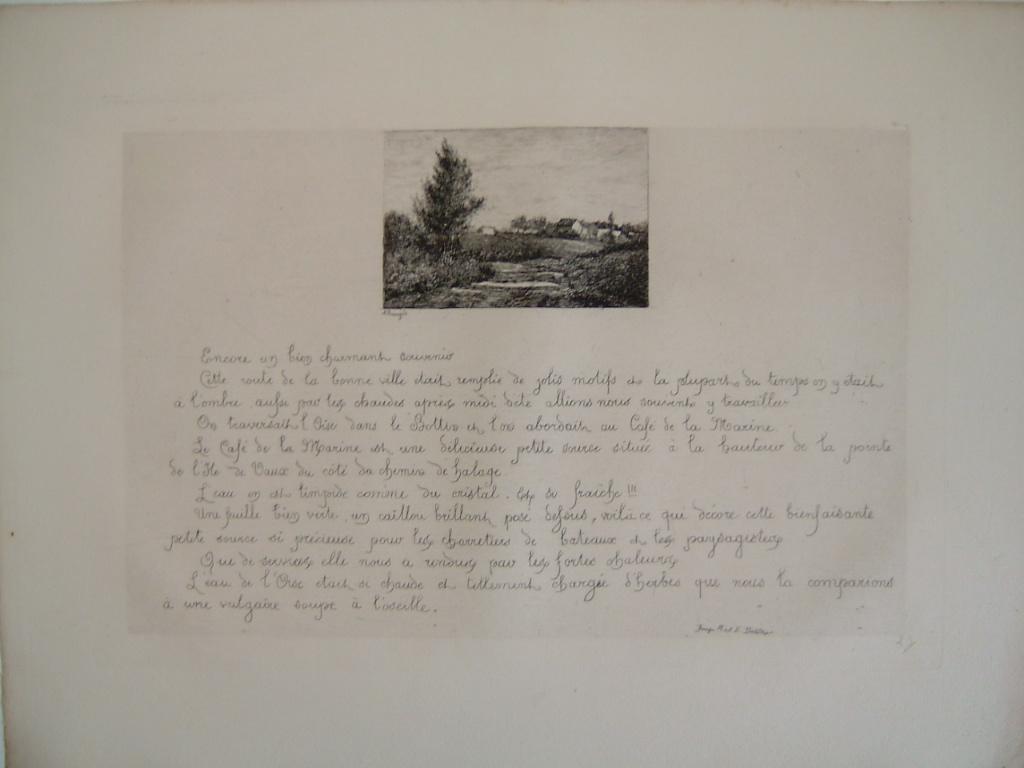 Encore un bien charmant souvenir
Cette route de la bonne ville était remplie de jolis motifs et la plupart du temps on y était
à l'ombre aussi par les chaudes après midi d'été allions nous souvent y travailler
On traversait l'Oise dans le Bottin et l'on abordait au Café de la Marine.
Le Café de la Marine est une délicieuse petite source située à la hauteur de la pointe
de l'Ile de Vaux du côté du chemin de halage.
L'eau en est limpide comme du cristal. Et si fraîche !!!
Une feuille bien verte, un caillou brillant posé dessus, voilà ce qui décore cette bienfaisante
petite source si précieuse pour les charretiers de bateaux et les paysagistes
Que de services elle nous a rendus par les fortes chaleurs
L'eau de l'Oise était si chaude et tellement chargée d'herbes que nous la comparions
à une vulgaire soupe à l'oseille.